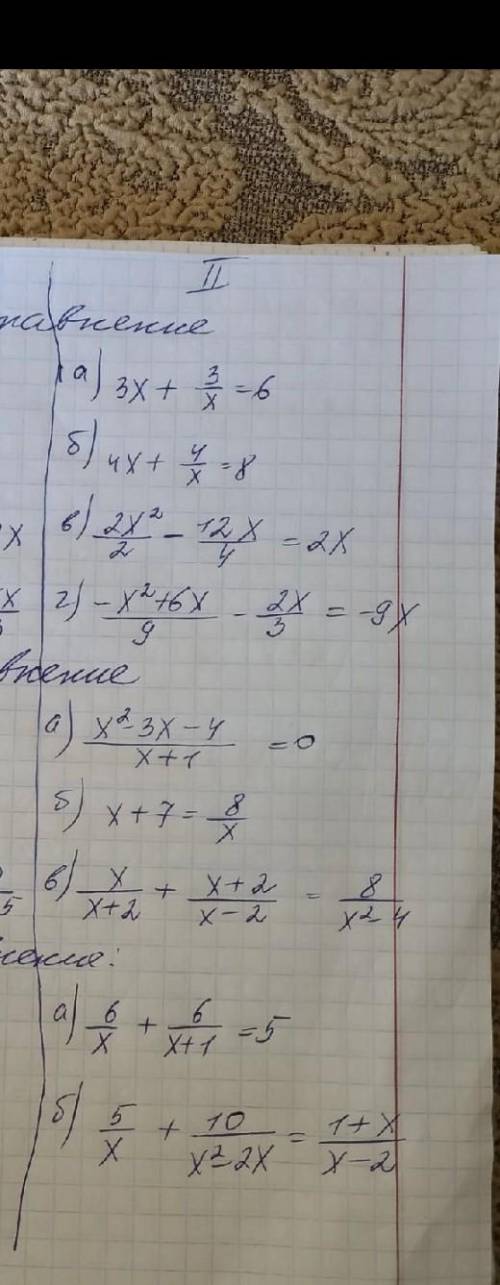 II
равнение
а) 3x + 3/x = 6
б) 4x + 4/x = 8
в) 2x²/2 - 12x/4 = 2x
г) -x²+6x/9 - 2x/3 = -9x
внение
а) x²-3x-4/x+1 = 0
б) x + 7 = 8/x
в) x/x+2 + x+2/x-2 = 8/x²-4
нение:
а) 6/x + 6/x+1 = 5
б) 5/x + 10/x²-2x = 1+x/x-2